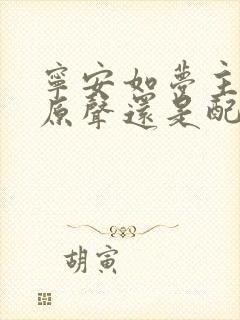 寧安如夢主
原聲還是配
胡寅